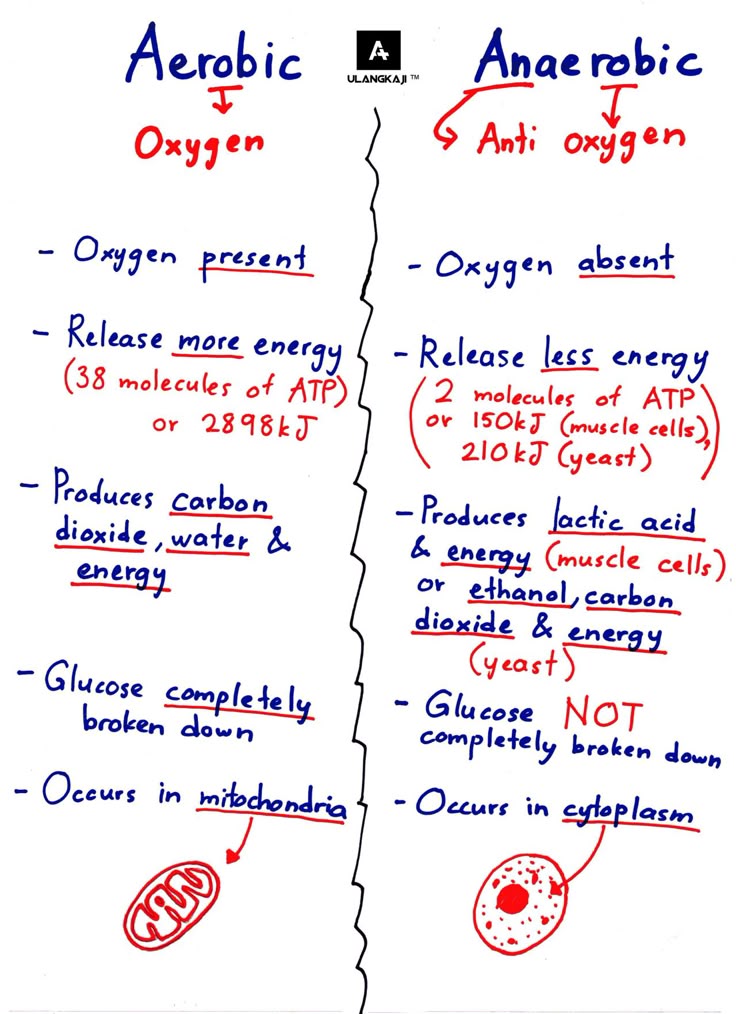 Aerobic
Oxygen
- Oxygen present
- Release more energy
(38 molecules of ATP)
or 2898kJ
- Produces carbon
dioxide, water &
energy
- Glucose completely
broken down
- Occurs in mitochondria
A
ULANGKAJI ™
Anaerobic
Anti oxygen
- Oxygen absent
- Release less energy
(2 molecules of ATP
or 150kJ (muscle cells),
210kJ (yeast))
- Produces lactic acid
& energy (muscle cells)
or ethanol, carbon
dioxide & energy
(yeast)
- Glucose NOT
completely broken down
- Occurs in cytoplasm